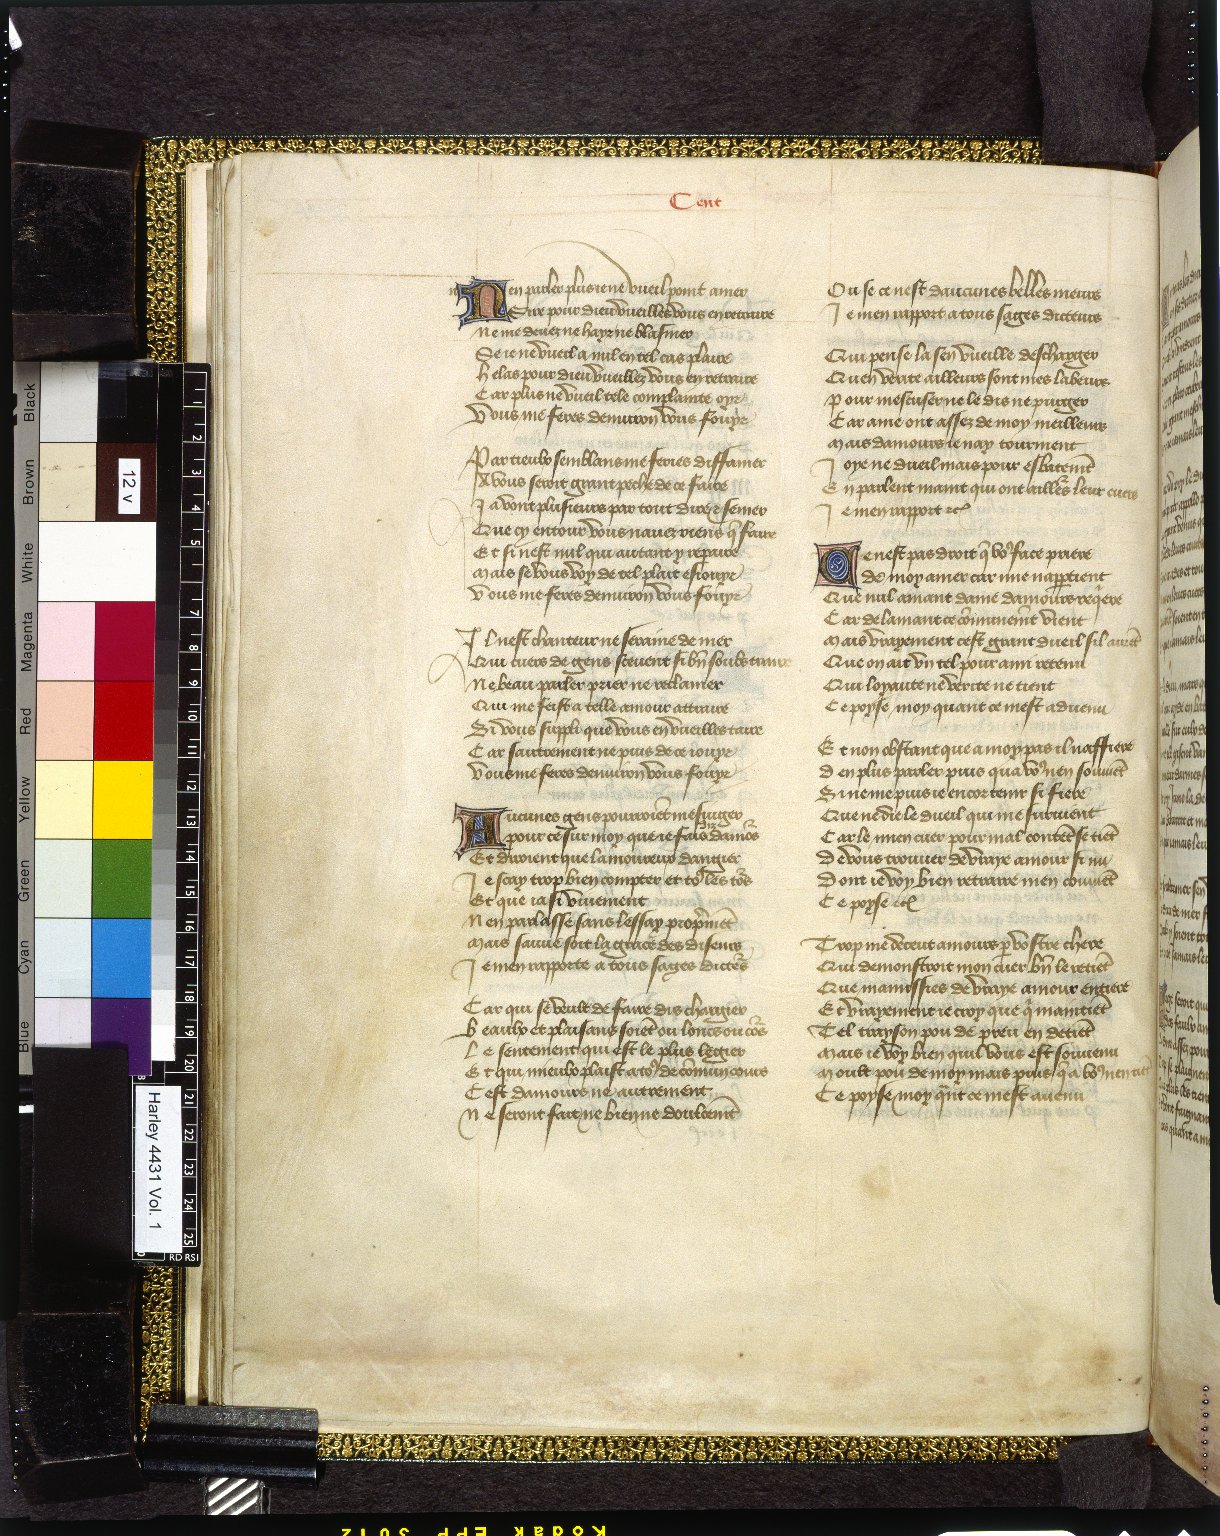 Cent
Nen parler plus ie ne vueil point amer
Sire pour dieu vueilles vous en retraire
Ne me deuer ne hayr ne blasmer
Se ie ne vueil a nul en tel cas plaire
helas pour dieu vueillez vous en retraire
Car plus ne vueil tele complainte oyr
Vous me feres denuiron vous fouyr
Par ceulx semblans me feries diffamer
A vous seroit grant peche de ce faire
Ja vont plusieurs par tout dire & semer
Que cy entour vous nauez riens q̃ faire
Et si nest nul qui autant y repaire
Mais se vous voy de tel plait esiouyr
Vous me feres denuiron vous fouyr
Il nest chanteur ne seraine de mer
Qui cuers de gens sceuent si bñ soubztraire
Ne beau parler prier ne reclamer
Qui me feist a telle amour attraire
Si vous suppli que vous en vueilles taire
Car sautrement ne puis de ce iouyr
Vous me feres denuiron vous fouyr
Aucunes gens pourroiẽt mesiuger
pour ce sur moy que ie fais diz damo͛s
Et diroient que lamoureux dangier
Je scay trop bien compter et to͛ les to͛s
Et que ia si viuement
Nen parlasse sans lessay prop̃mẽt
Mais sauue soit la grace des diseurs
Je men rapporte a tous sages dicte͛s
Car qui se veult de faire dis chargier
Beaulx et plaisans soiẽt ou loncs ou co͛s
Le sentement qui est le plus legier
Et qui mieulx plaist a to͛ de cõmun cours
Cest damours ne autrement
Ne seront fait ne bien ne doulcemẽt
Ou se ce nest daucunes belles meurs
Je men rapport a tous sages dicteurs
Qui pense la sen vueille deschargier
Quen verite ailleurs sont mes labeurs
Pour mescuser ne le dis ne purger
Car ame ont assez de moy meilleurs
Mais damours ie nay tourment
Joye ne dueil mais pour esbatemẽt
En parlent maint qui ont aille͛s leur cuers
Je men rapport &c
Ce nest pas droit q̃ vo͛ face priere
de moy amer car a me napptient
Que nul amant dame damours req̃ere
Car de lamant ce cõmunemẽt vient
Mais vrayement cest grant dueil sil auiẽt
Que on ait vn tel pour ami retenu
Qui loyaute ne verite ne tient
Ce poyse moy quant ce mest aduenu
Et non obstant que a moy pas il naffiere
den plus parler puis qua vo͛ nen souuiẽt
Si ne me puis ie encor tenir si fiere
Que ne die le dueil qui me suruient
Car le mien cuer pour mal content se tiẽt
De vous trouuer de vraye amour si nu
Dont ie voy bien retraire men couuiẽt
Ce poyse &c
Trop me deceut amours p̱ vostre chere
Qui demonstroit mon cuer bñ le retiẽt
Que mamissies de vraye amour entiere
Et vrayement ie croy que q̃ maintiẽt
Tel trayson pou de preu en detiẽt
Mais ie voy bien quil vous est souuenu
Moult pou de moy mais puis q̃ a vo͛ nen tiẽt
Ce poyse moy q̃nt ce mest auenu
Black
Brown
White
Magenta
Red
Yellow
Green
Cyan
Blue
12 v
1
2
3
4
5
6
7
8
9
10
11
12
13
14
15
16
17
18
19
20
21
22
23
24
25
Harley 4431 Vol. 1
Kodak EPP 5012